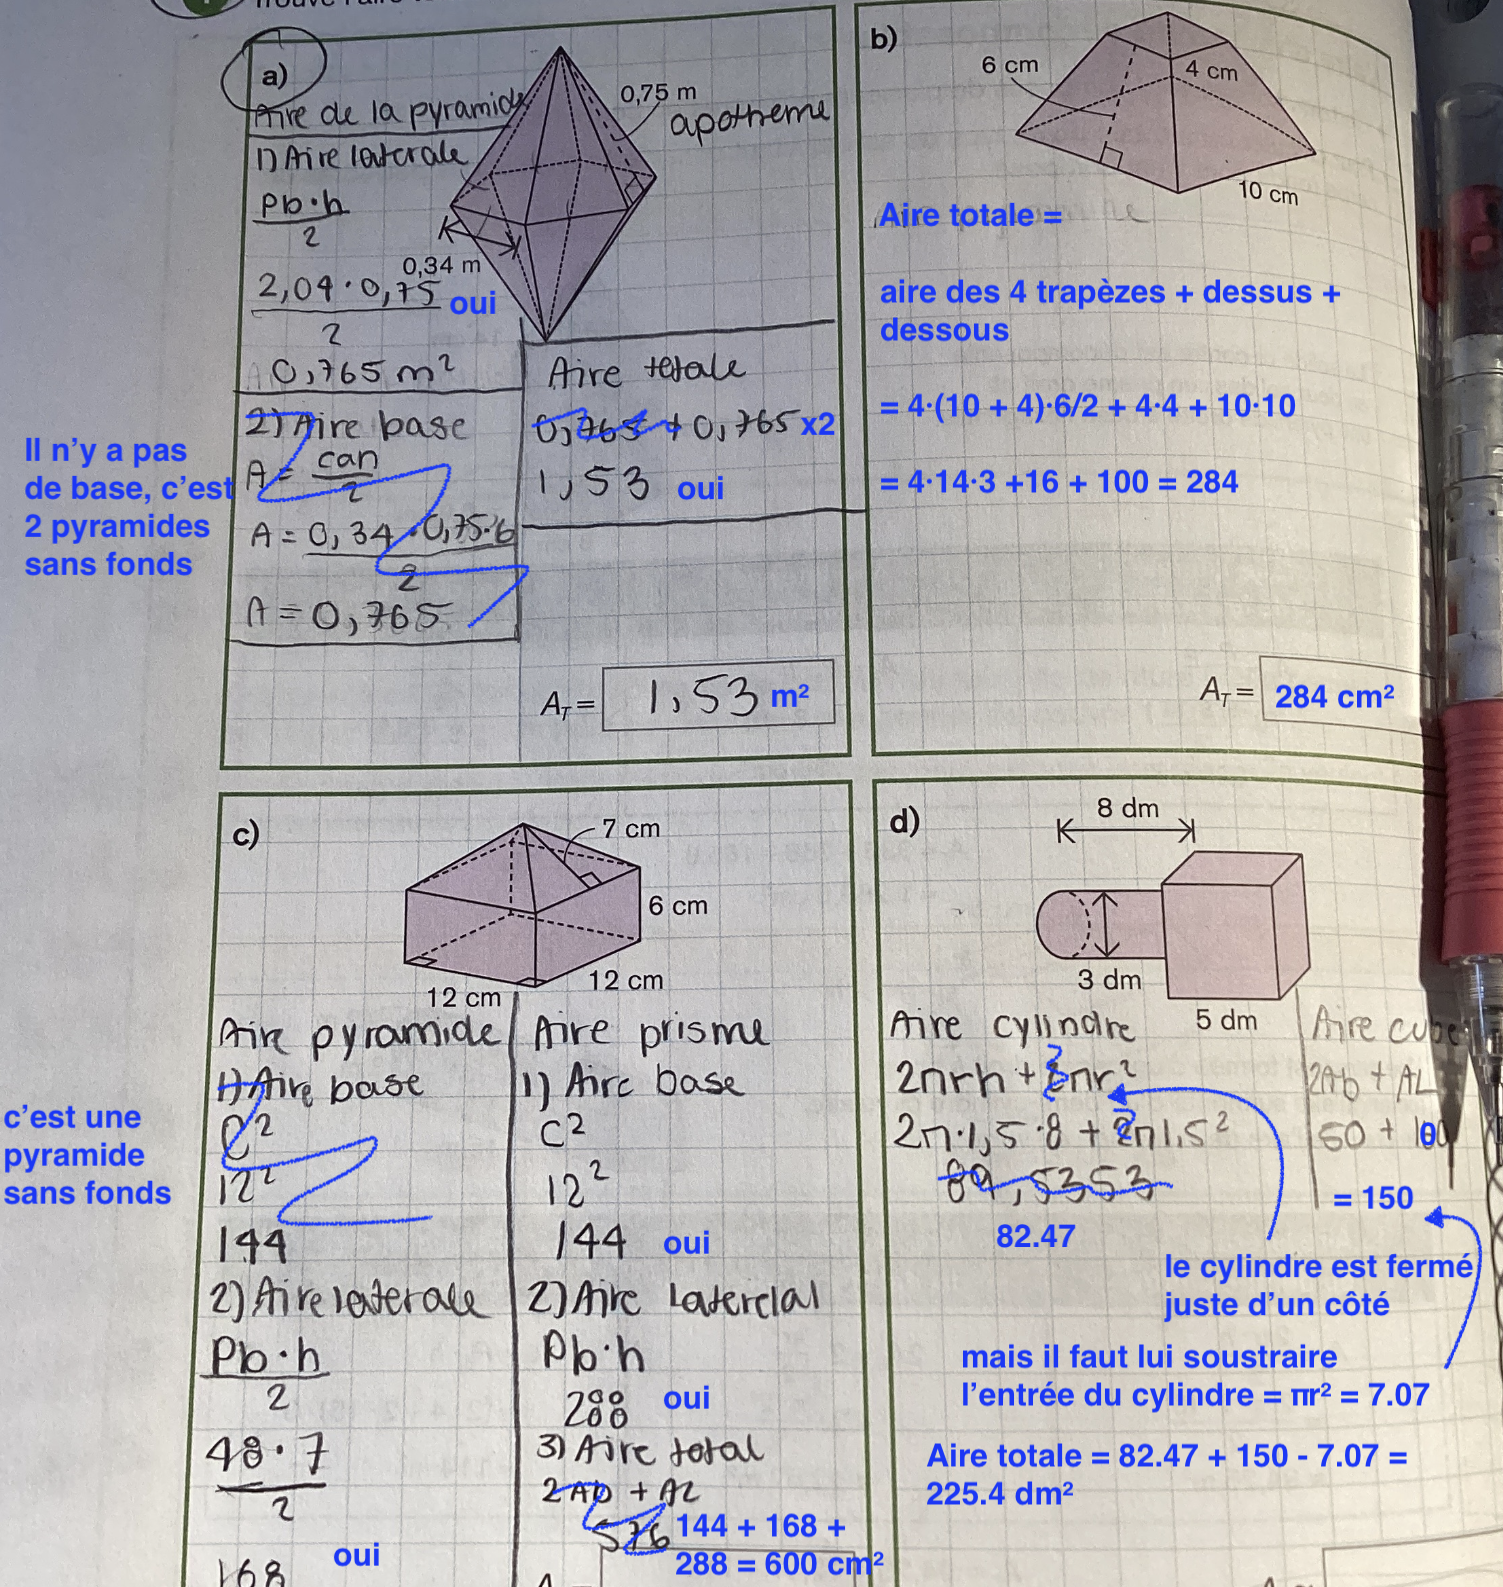 a)
0,75 m
apotheme
Aire de la pyramide
1) Aire laterale
Pb·h
2
0,34 m
2,04·0,75
2
oui
0,765 m²
2) Aire base
A = can
2
A = 0,34·0,75·6
2
A = 0,765
Il n'y a pas
de base, c'est
2 pyramides
sans fonds
Aire totale
0,765 + 0,765 x2
1,53 oui
A_T = 1,53 m²
b)
6 cm
4 cm
10 cm
Aire totale =
aire des 4 trapèzes + dessus +
dessous
= 4·(10 + 4)·6/2 + 4·4 + 10·10
= 4·14·3 +16 + 100 = 284
A_T = 284 cm²
c)
7 cm
6 cm
12 cm
12 cm
Aire pyramide
1) Aire base
C²
12²
144
c'est une
pyramide
sans fonds
2) Aire laterale
Pb·h
2
48·7
2
168
oui
Aire prisme
1) Aire base
C²
12²
144 oui
2) Aire
Pb·h
288 oui
3) Aire total
2Ab + AL
576
144 + 168 +
288 = 600 cm²
d)
8 dm
3 dm
5 dm
Aire cylindre
2πrh + 2πr²
2π·1,5·8 + 2π1,5²
89,5353
82.47
Aire cube
2Ab + AL
50 + 100
= 150
le cylindre est fermé
juste d'un côté
mais il faut lui soustraire
l'entrée du cylindre = πr² = 7.07
Aire totale = 82.47 + 150 - 7.07 =
225.4 dm²